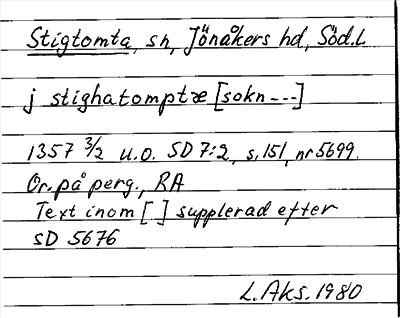 Stigtomta, sn, Jönåkers hd, Söd.L
j stighatomptæ [sokn---]
1357 3/2 u.o. SD 7:2, s,151, nr 5699.
Or. på perg., RA
Text inom [ ] supplerad efter
SD 5676
L. Aks. 1980